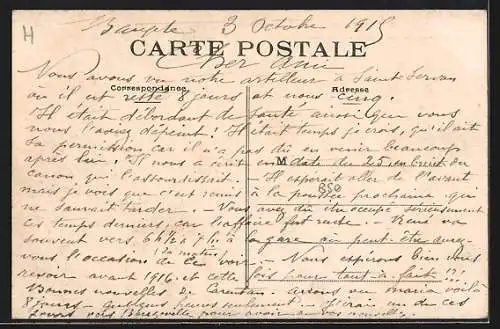 H
Baupte 3 Octobre 1915
CARTE POSTALE
Cher Ami
Nous avons vu notre artilleur à Saint Servan
Correspondance
Adresse
où il est resté 8 jours et nous cinq.
Il était débordant de santé ainsi que vous
nous l'aviez dépeint! Il était temps je crois, qu'il ait
sa permission car il n'a pas dû en venir beaucoup
après lui! Il nous a écrit en date du 25 en bruit du
M
canon qui l'assourdissait. - Il espérait aller de l'avant
mais je vois que c'est remis à la poussée prochaine qui
850
ne saurait tarder. - Vous avez dû être occupé sérieusement
ces temps derniers, car l'affaire fut rude. - René va
souvent vers 6h 1/2 à 7h à la gare où peut-être aurez-
(du matin)
vous l'occasion de le voir. - Nous espérons bien vous
revoir avant 1916 et cette fois pour tout-à-fait ?!!
Bonnes nouvelles de Carentan - avons vu maria voilà
8 jours - quelques heures seulement - J'irai un de ces
jours vers pour avoir de vos nouvelles